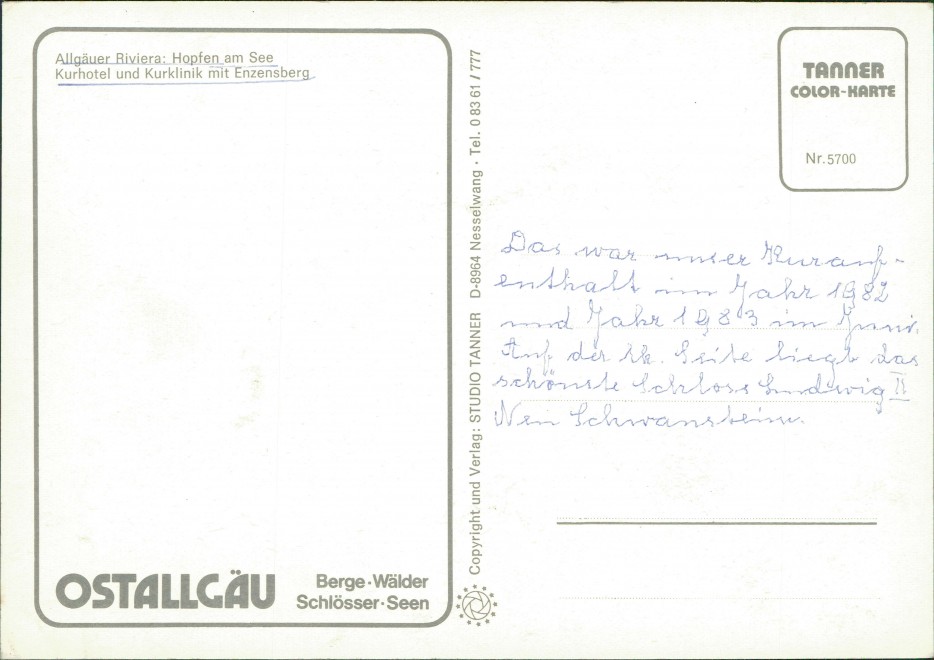 Allgäuer Riviera: Hopfen am See
Kurhotel und Kurklinik mit Enzensberg
OSTALLGÄU
Berge·Wälder
Schlösser·Seen
Copyright und Verlag: STUDIO TANNER D-8964 Nesselwang · Tel. 0 83 61 / 777
TANNER
COLOR-KARTE
Nr. 5700
Das war unser Kurauf-
enthalt im Jahr 1982
und Jahr 1983 im Juni.
Auf der Seite liegt das
schönste Schloss Ludwig II
Neu Schwanstein.